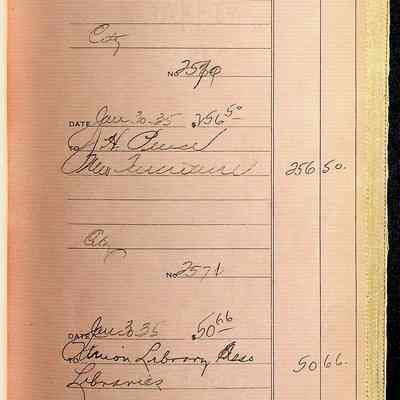 City
No 2570
DATE Jan. 30-35 $256 50
TO J. H. Pence
New Furniture 256 50.
City
No 2571
DATE Jan 30-35 $50 66
TO Union Library Asso
Libraries 50 66.